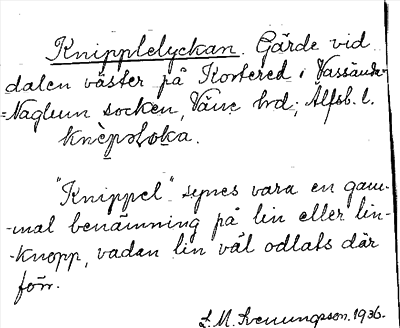 Knipplelyckan. Gärde vid
dalen väster på Kortered i Vassända-
=Naglum socken, Väne hd; Älfsb. l.
knèpsloka.
"Knippel" synes vara en gam-
-mal benämning på lin eller lin-
-knopp, vadan lin väl odlats där
förr.
L. M. Svenungsson. 1936.